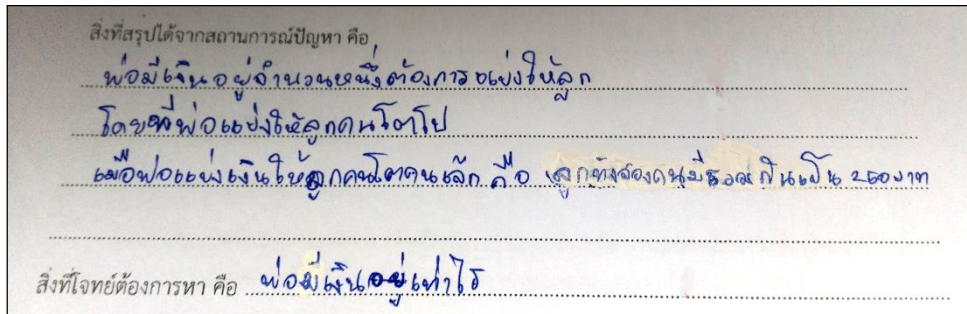 สิ่งที่สรุปได้จากสถานการณ์ปัญหา คือ
พ่อมีเงินอยู่จำนวนหนึ่งต้องการแบ่งให้ลูก
โดยที่พ่อแบ่งให้ลูกคนโตไป
เมื่อพ่อแบ่งเงินให้ลูกคนโตคนเล็ก คือ ลูกทั้งสองคนมีรวมกันเป็น บาท
สิ่งที่โจทย์ต้องการหา คือ พ่อมีเงินอยู่เท่าไร